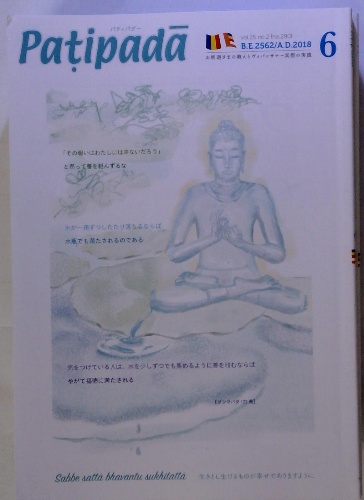 パティパダー
Paṭipadā
B.E.2562/A.D.2018
6
お釈迦さまの教えとヴィパッサナー瞑想の実践
「その報いはわたしには来ないだろう」
と思って善を軽んずるな
水が一滴ずつしたたり落ちるならば
水瓶でも満たされるのである
気をつけている人は、水を少しずつでも集めるように善を積むならば
やがて福徳に満たされる
Sabbe sattā bhavantu sukhitattā
生きとし生けるものが幸せでありますように